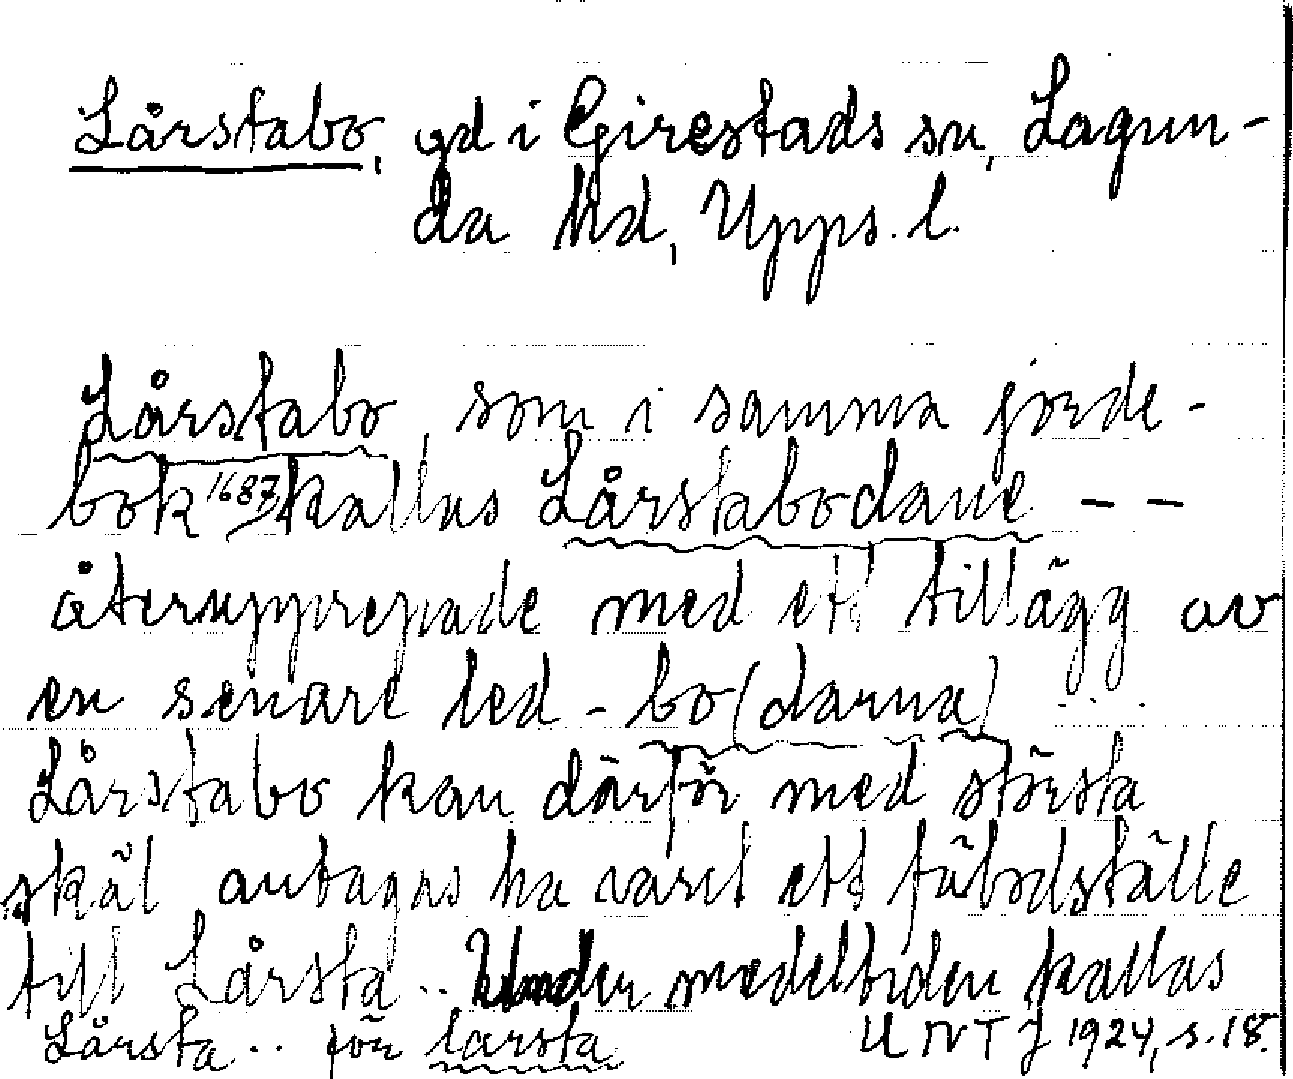 Lårstabo, gd i Girestads sn, Lagun-
da hd, Upps. l.
Lårstabo, som i samma jorde-
bok 1687 kallas Lårstabodane - -
återupprepade med ett tillägg av
en senare led - bo(darna) ...
Lårstabo kan därför med största
skäl antagas ha varit ett fäbodställe
till Lårsta .. Under medeltiden kallas
Lårsta .. för larsta UNTJ 1924, s. 18.